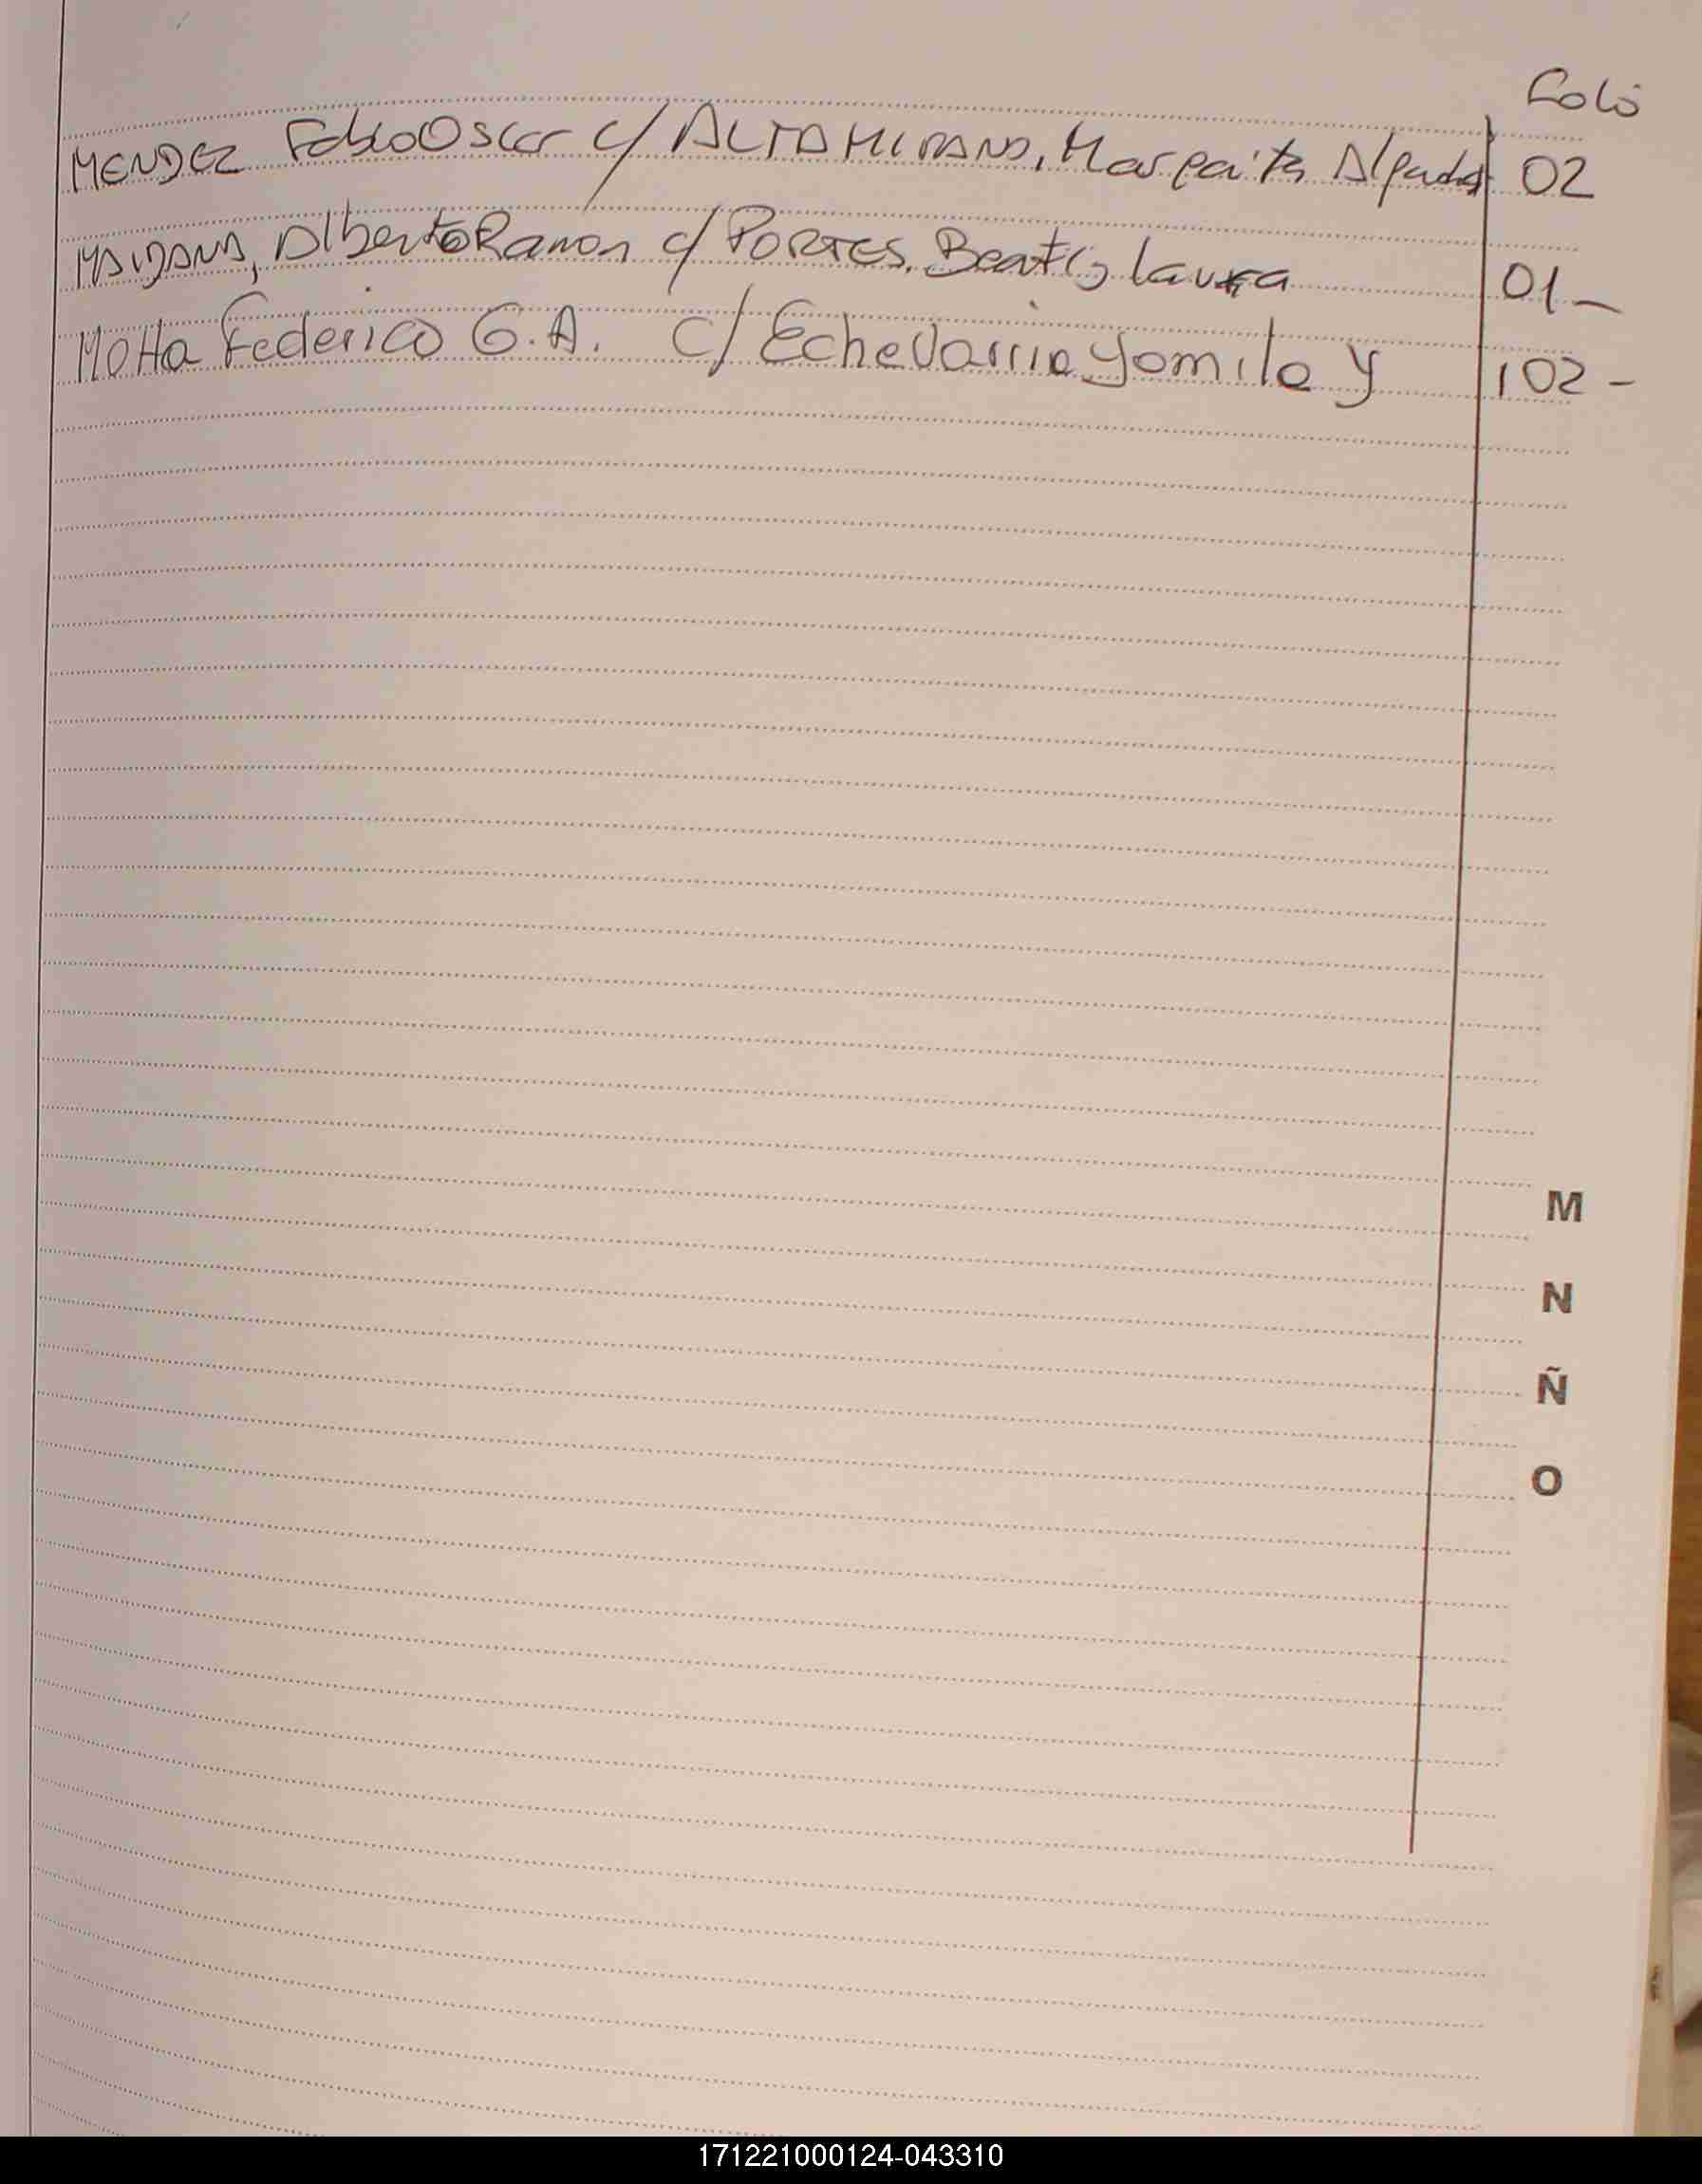 Folio
MENDEZ Fabio Oscar c/ ALTAMIRANO, Margarita 02
Alberto Ramon c/ PORTES, Beatriz Laura 01-
Motta Federico G.A. c/ Echevarria Yamila Y 102-
M
N
Ñ
O
171221000124-043310